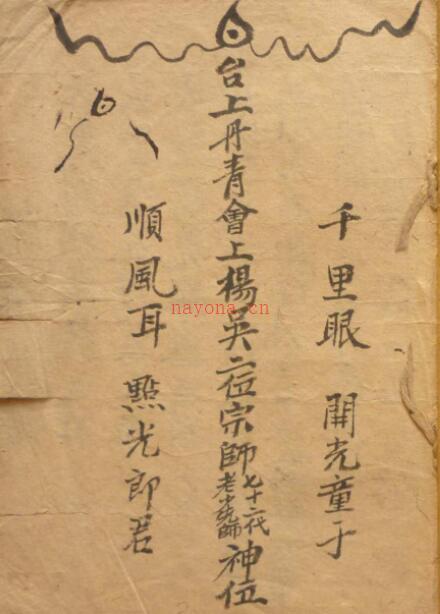 千里眼 開光童子
台上丹青會上楊吳二位宗師七十二代老先師神位
順風耳 點光郎君
nayona.cn